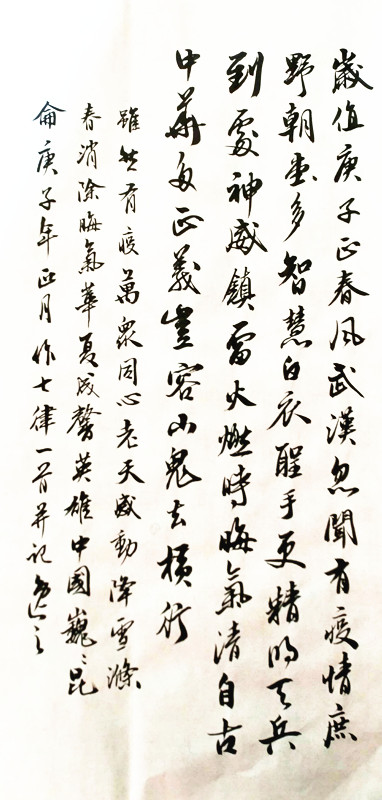 歲值庚子正春风武漢忽聞有疫情庶
野朝堂多智慧白衣聖手更精明天兵
到處神威鎮雷火燃時晦氣清自古
中華多正義豈容山鬼去横行
雖然有疫萬衆同心老天感動降雪滌
春消除晦氣華夏成馨英雄中國巍〻昆
侖庚子年正月作七律一首并记